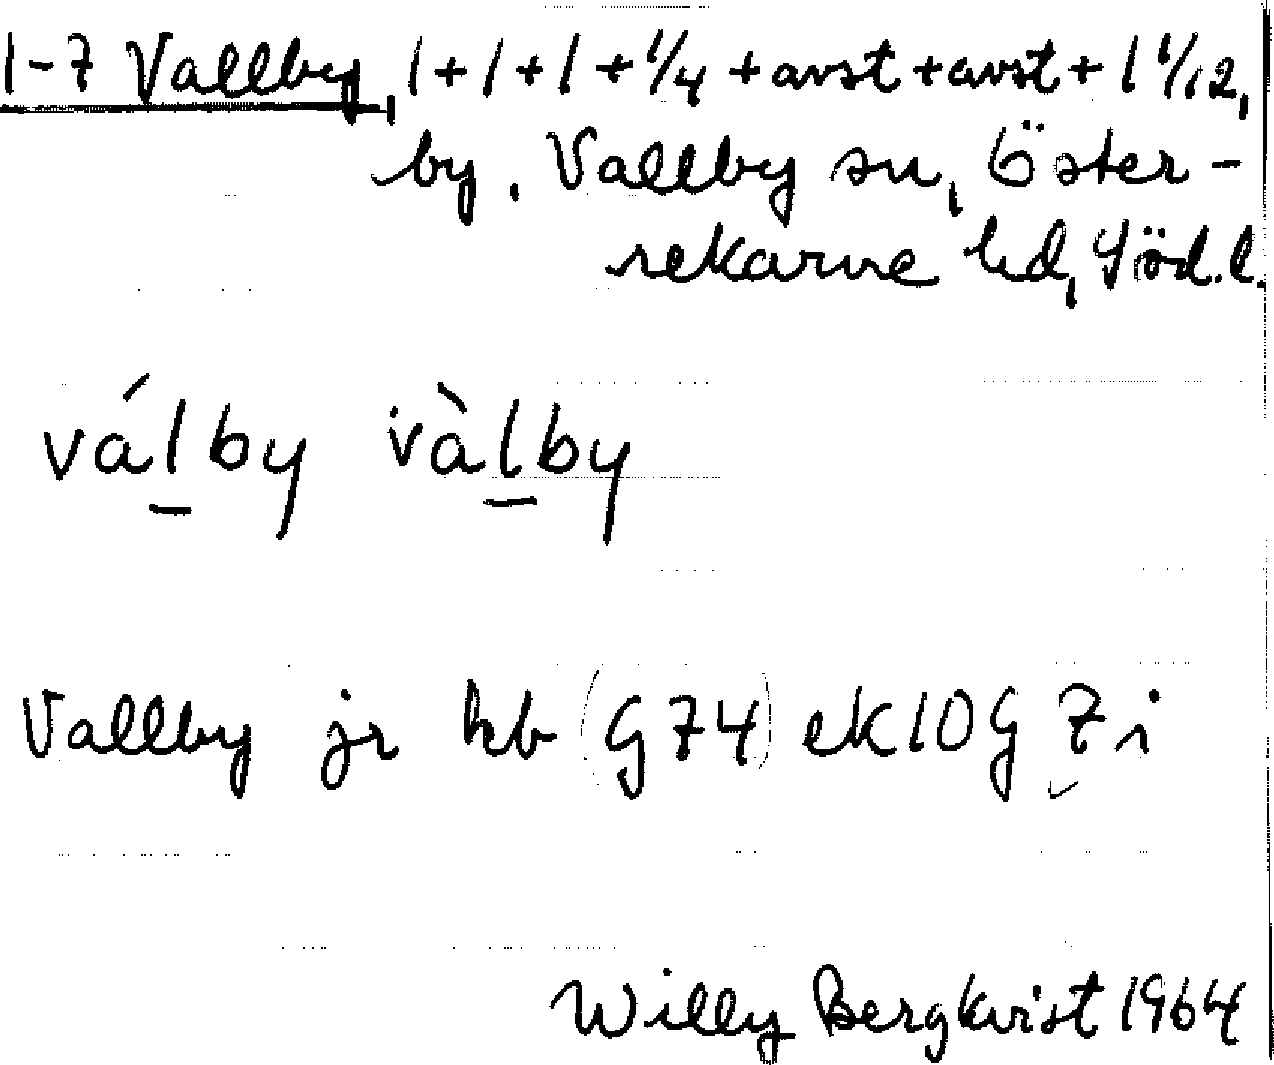 1-7 Vallby, 1+1+1+1/4+avst+avst+1 1/12,
by. Vallby sn, Öster-
rekarne hd, Söd.l.
válby vàlby
Vallby jr hb (G74) ek10G 7i
Willy Bergkvist 1964